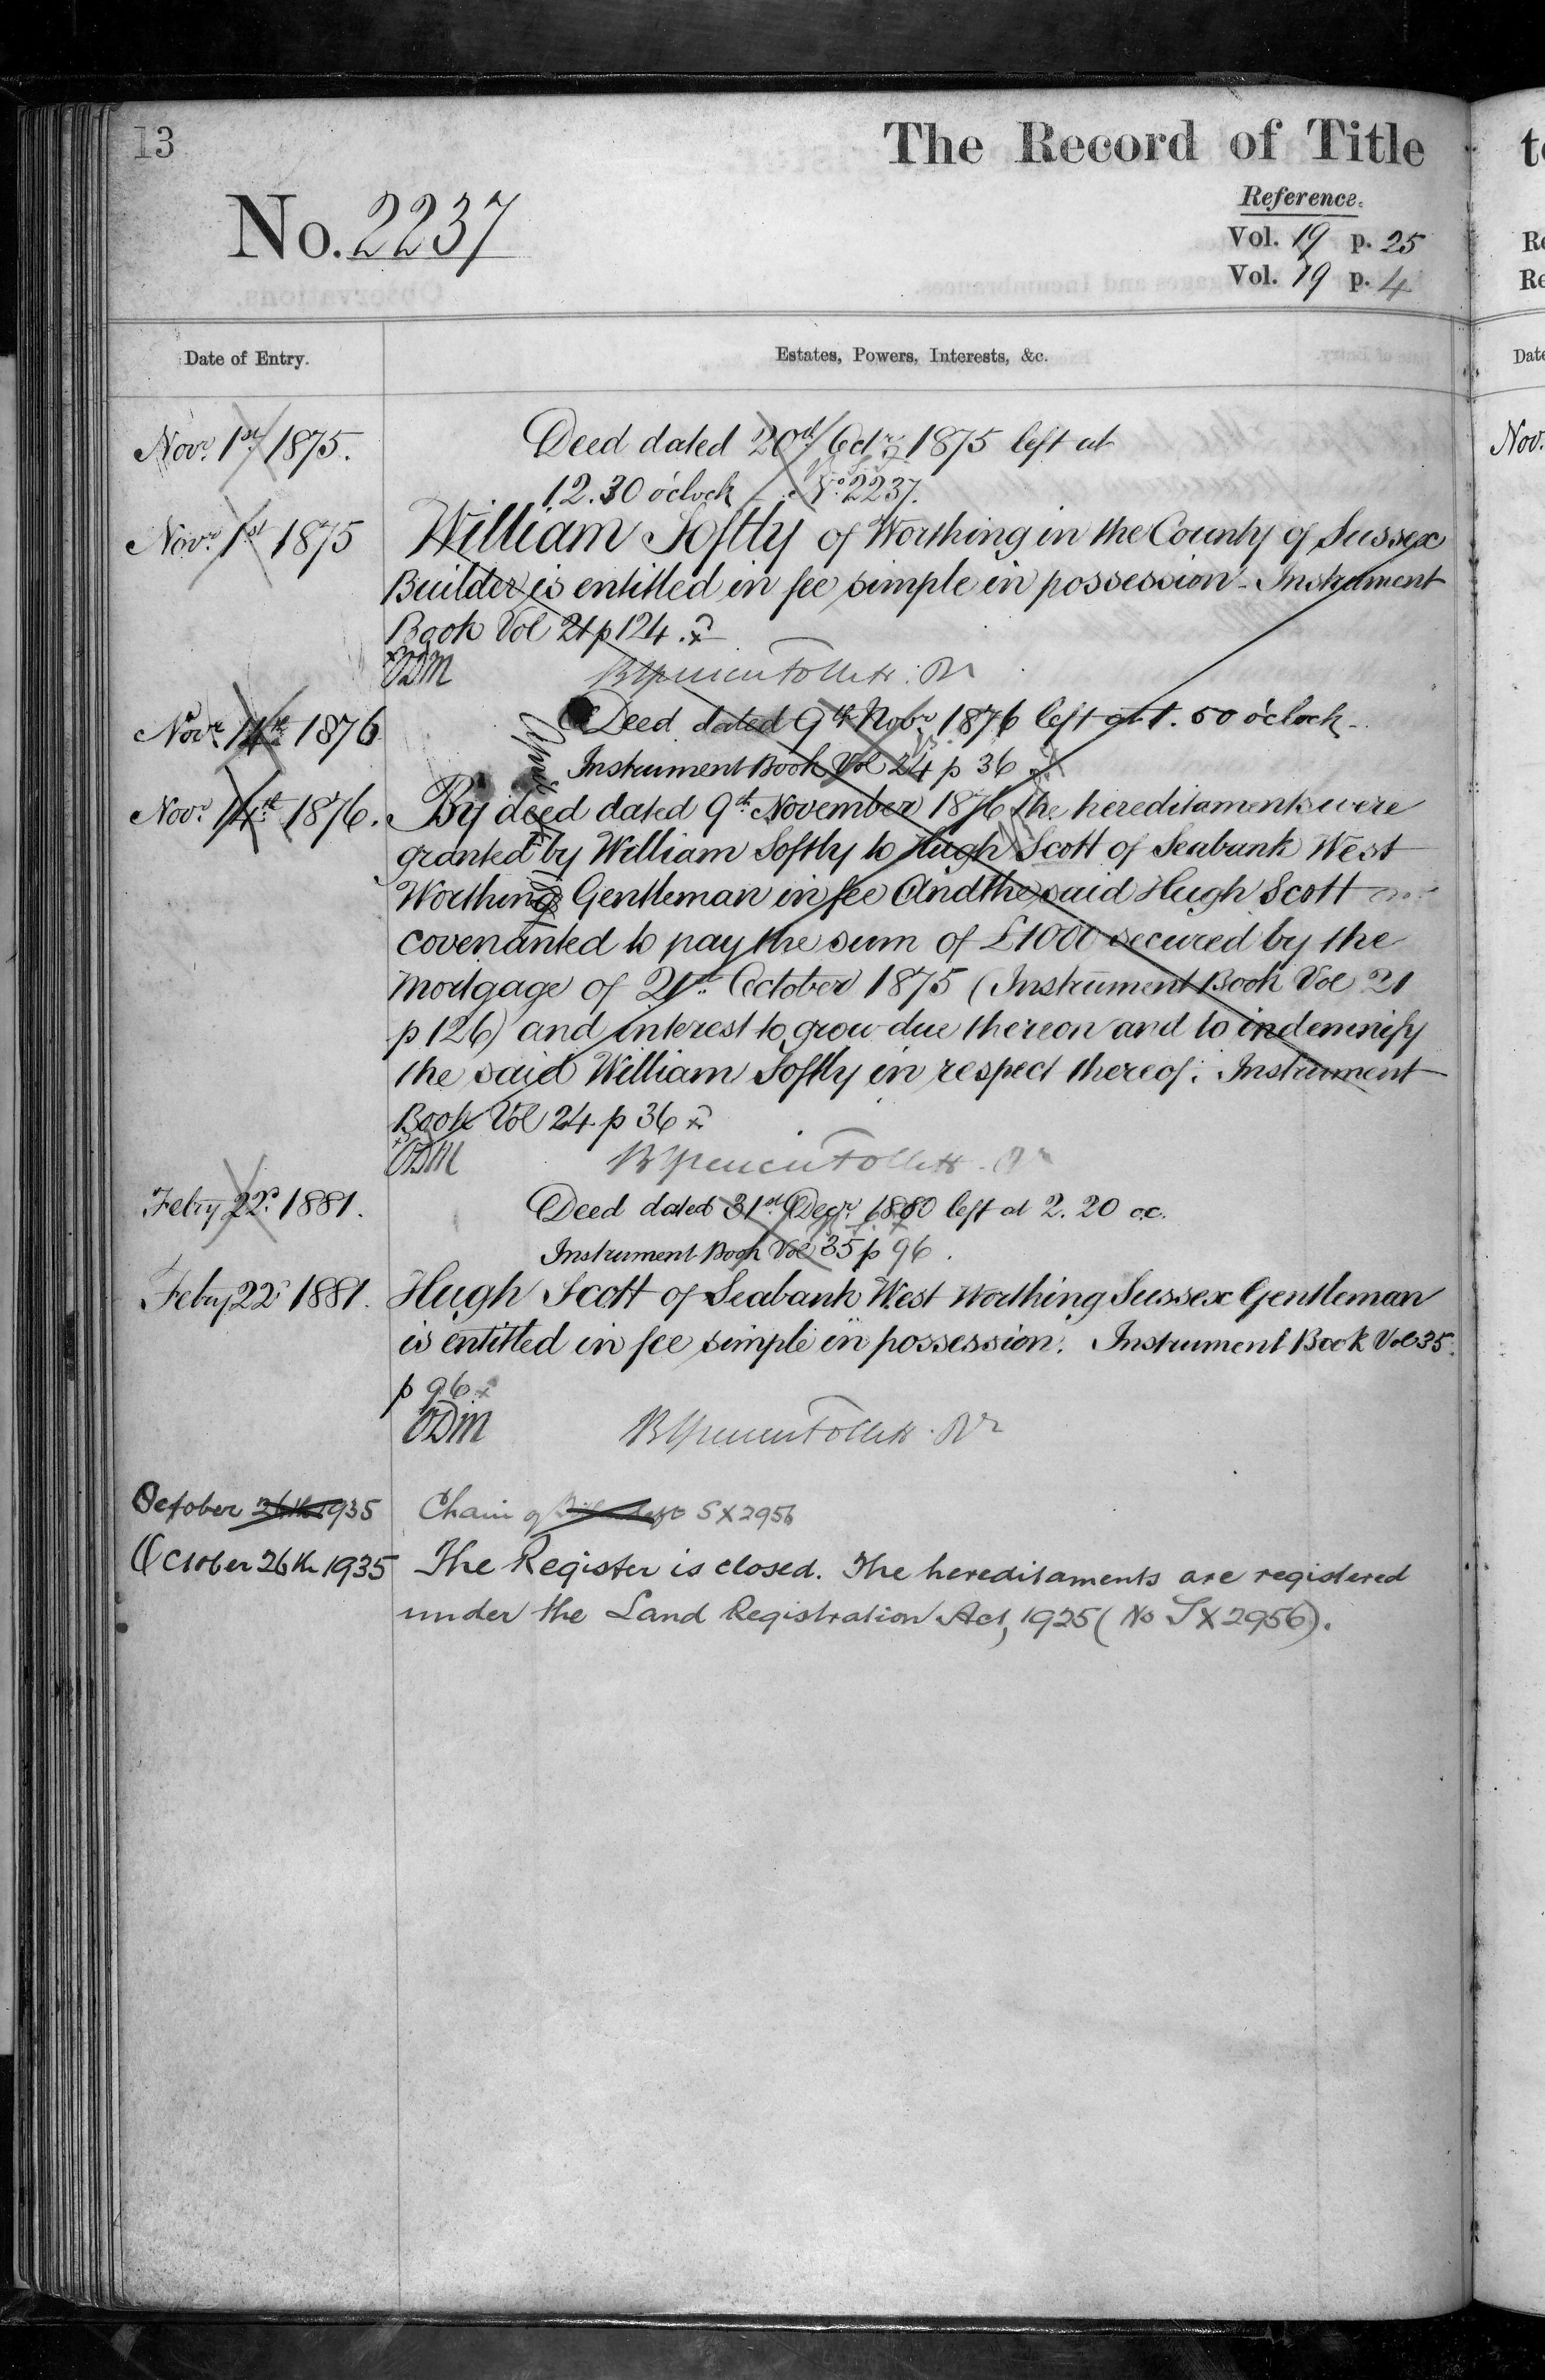 13
The Record of Title
Reference.
No. 2237
Vol. 19 p. 25
Vol. 19 p. 4
Date of Entry.
Estates, Powers, Interests, &c.
Novr. 1st 1875.
Deed dated 20th Octr. 1875 left at
12.30 o'clock No. 2237.
Novr. 1st 1875
William Softly of Worthing in the County of Sussex
Builder is entitled in fee simple in possession - Instrument
Book Vol 21 p 124.
ODM
Novr. 14th 1876
Deed dated 9th Novr. 1876 left at 1.50 o'clock
Instrument Book Vol 24 p 36
Novr. 14th 1876.
By deed dated 9th November 1876 the hereditaments were
granted by William Softly to Hugh Scott of Seabank West
Worthing Gentleman in fee And the said Hugh Scott
covenanted to pay the sum of £1000 secured by the
Mortgage of 21st October 1875 (Instrument Book Vol 21
p 126) and interest to grow due thereon and to indemnify
the said William Softly in respect thereof. Instrument
Book Vol 24 p 36
ODM
Febry 22d 1881.
Deed dated 31st Decr. 1880 left at 2.20 o.c.
Instrument Book Vol 35 p 96.
Febry 22d 1881.
Hugh Scott of Seabank West Worthing Sussex Gentleman
is entitled in fee simple in possession. Instrument Book Vol 35.
p 96
ODM
October 26th 1935
Chain of SX2956
October 26th 1935
The Register is closed. The hereditaments are registered
under the Land Registration Act, 1925 (No SX2956).
t
R
Re
Date
Nov.